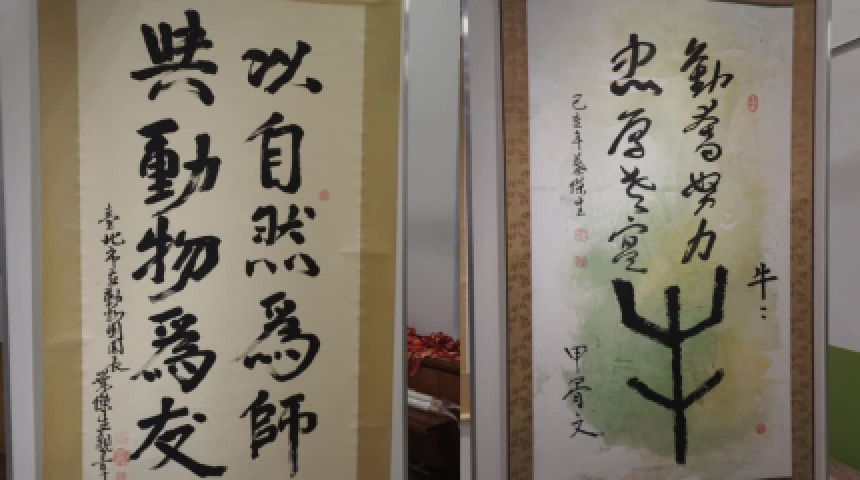 以自然為師
與動物為友
臺北市立動物園園長
葉傑生敬書
勤奮努力
忠厚老實
己亥年葉傑生
牛:
甲骨文